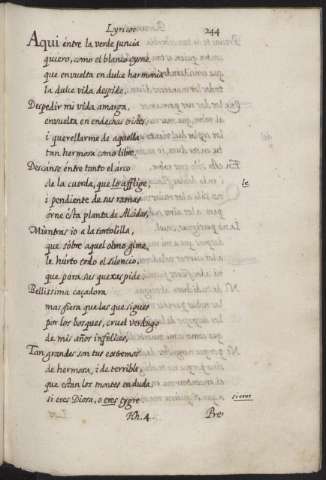 Lyricos 244
Aqui entre la verde juncia
quiero, como el blanco cysne
que envuelta en dulce harmonia
la dulce vida despide,
Despedir mi vida amarga,
envuelta en endechas tristes,
i querellarme de aquella
tan hermosa como libre.
Descanse entre tanto el arco
de la cuerda, que lo afflige, le
i pendiente de sus ramas
orne esta planta de Alcides,
Mientras io a la tortolilla,
que sobre aquel olmo gime,
le hurto todo el silencio,
que para sus quexas pide.
Bellissima caçadora
mas fiera que las que sigues
por los bosques, cruel verdugo
de mis años infelices,
Tan grandes son tus extremos
de hermosa, i de terrible,
que estan los montes en duda
si eres Diosa, o eres tygre si eres
Hh. 4. Pre